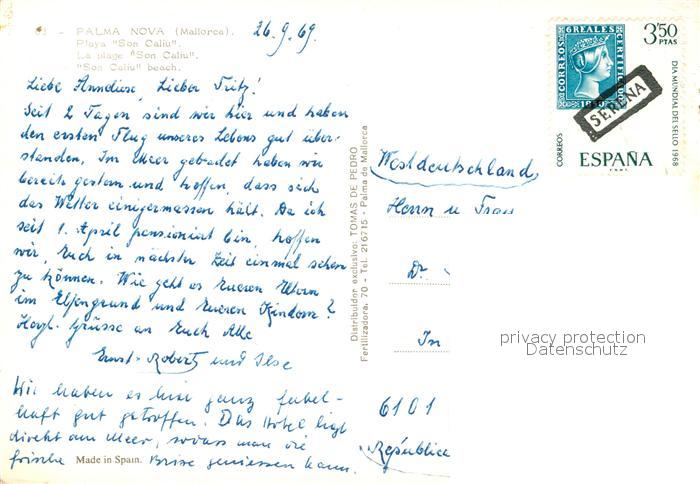 61 - PALMA NOVA (Mallorca).
Playa "Son Caliu".
La plage "Son Caliu".
"Son Caliu" beach.
26.9.69.
Liebe Anneliese, Lieber Fritz!
Seit 2 Tagen sind wir hier und haben
den ersten Flug unseres Lebens gut über-
standen. Im Meer gebadet haben wir
bereits gestern und hoffen, dass sich
das Wetter einigermassen hält. Da ich
seit 1. April pensioniert bin, hoffen
wir, Euch in nächster Zeit einmal sehen
zu können. Wie geht es Eueren Eltern
im Elfengrund und Eueren Kindern?
Herzl. Grüsse an Euch Alle
Ernst-Robert und Ilse
Wir haben es hier ganz fabel-
haft gut getroffen. Das Hotel liegt
direkt am Meer, sodass man die
frische Brise geniessen kann.
Made in Spain.
Distribuidor exclusivo: TOMAS DE PEDRO
Fertilizadora, 70 - Tel. 216715 - Palma de Mallorca
CORREOS 6 REALES CERTIFICDO
1850
3'50
PTAS
SERENA
DIA MUNDIAL DEL SELLO 1968
CORREOS
ESPAÑA
F.N.M.T.
Westdeutschland
Herrn u Frau
Dr.
In
6101
República
privacy protection
Datenschutz